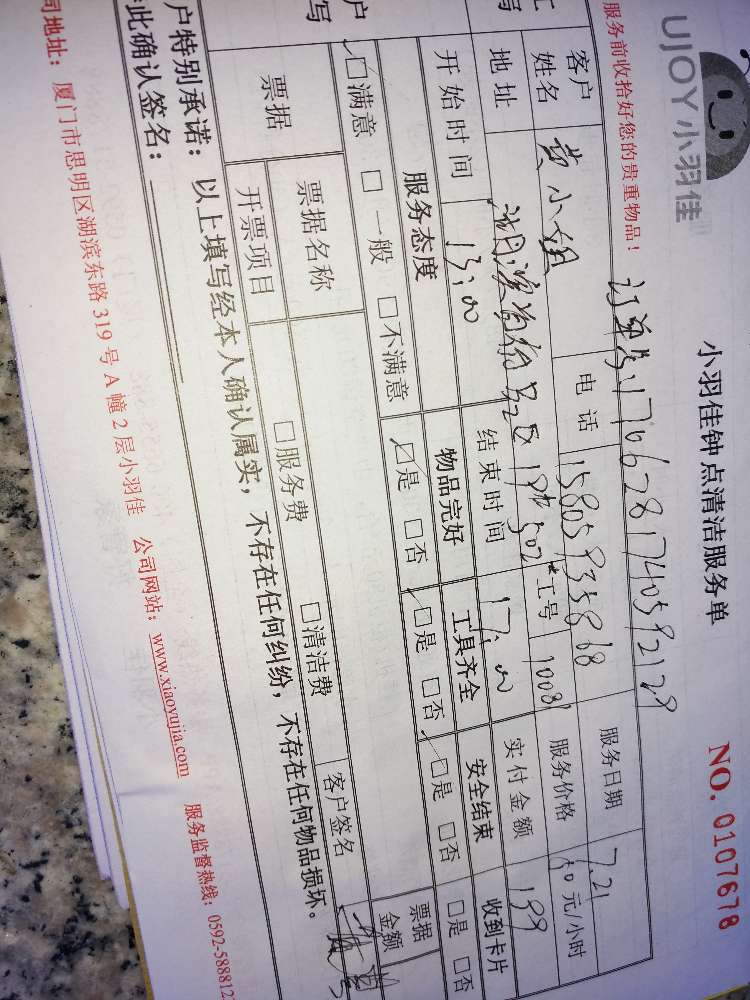 UJOY小羽佳
小羽佳钟点清洁服务单
NO. 0107678
服务前收拾好您的贵重物品！
订单号17067281740592129
客户姓名 黄小姐 电话 15805935868 服务日期 7.21
地址 工号 1008 服务价格 元/小时
开始时间 13:00 结束时间 17:00 实付金额 199
服务态度 物品完好 工具齐全 安全结束 收到卡片
☑满意 □一般 □不满意 ☑是 □否 ☑是 □否 ☑是 □否 □是 □否
票据 票据名称 □服务费 □清洁费 票据金额
开票项目 客户签名
户特别承诺：以上填写经本人确认属实，不存在任何纠纷，不存在任何物品损坏。
此确认签名：
司地址：厦门市思明区湖滨东路319号A幢2层小羽佳 公司网站：www.xiaoyujia.com 服务监督热线：0592-588812